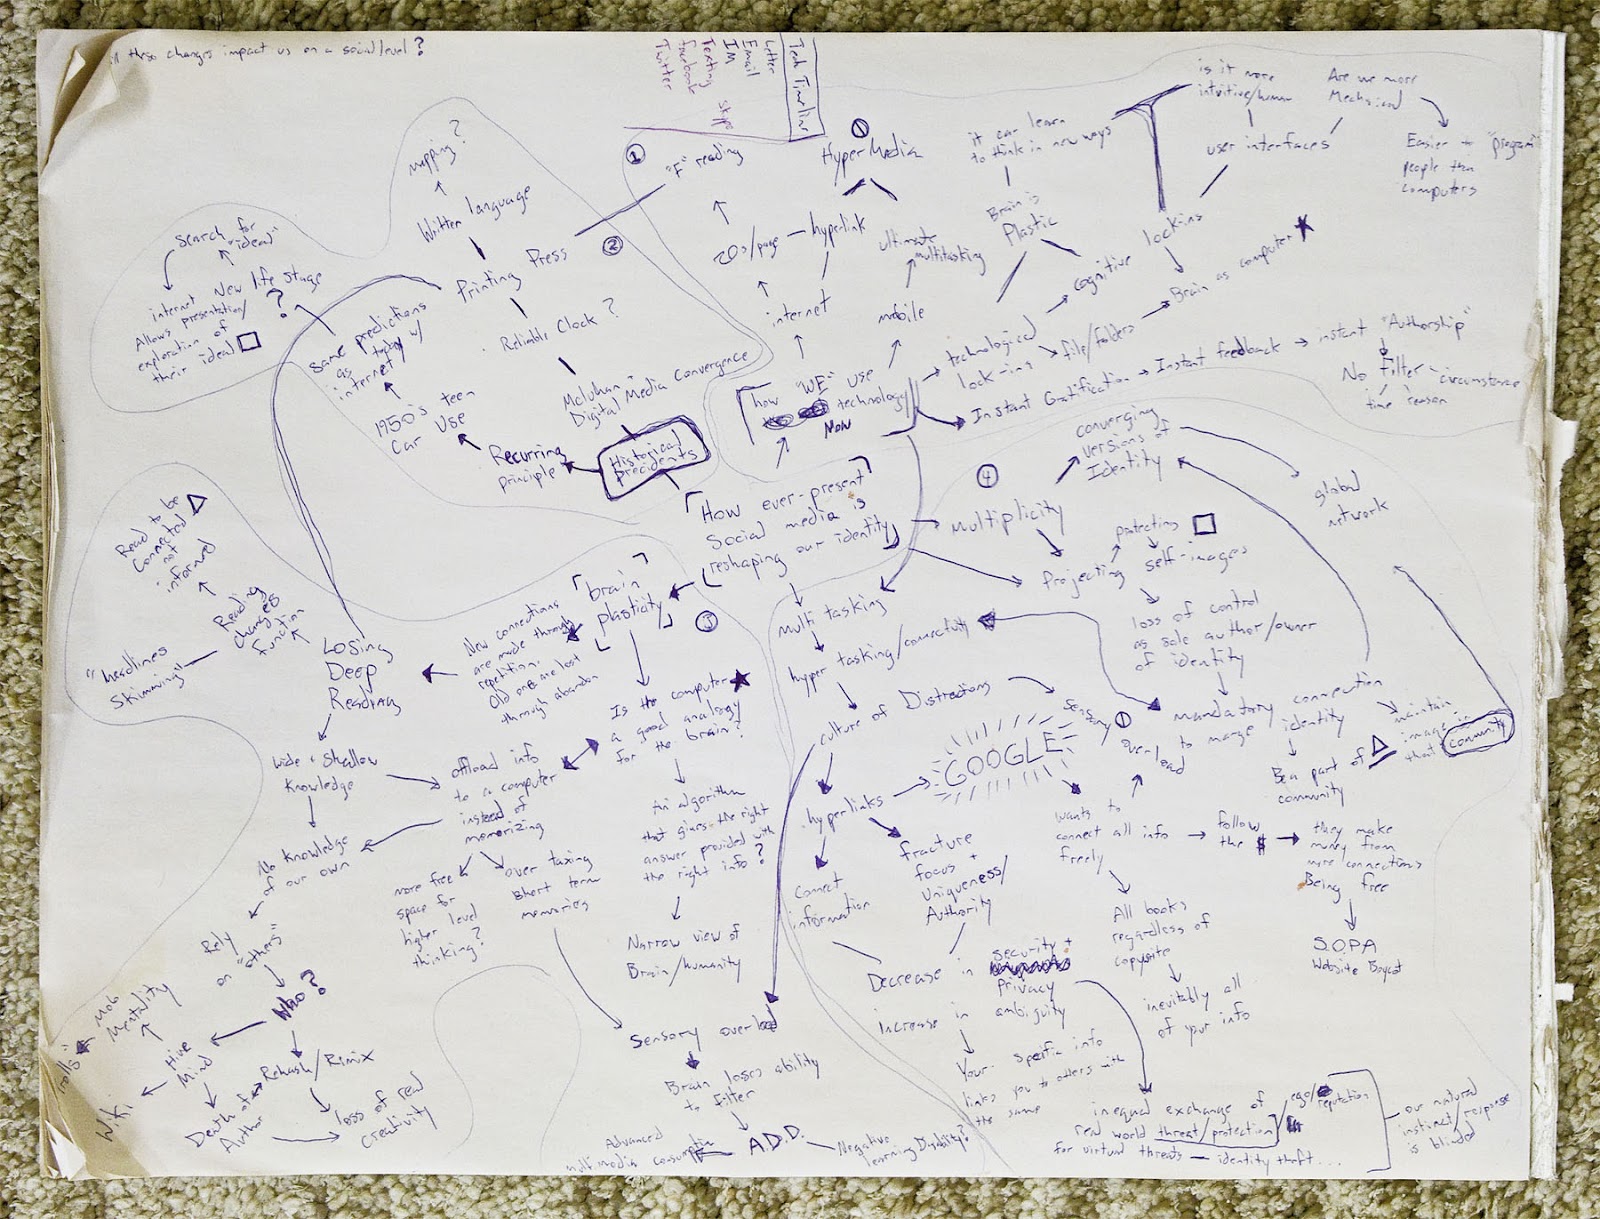 these changes impact us on a social level?
Tech Timeline
Letter
Email
IM
Texting
Facebook
Twitter
skype
is it more
intuitive/human
Are we more
Mechanical
user interfaces
Easier to "program"
people than
computers
① HyperMedia
it can learn
to think in new ways
Brain is
Plastic
20s/page — hyperlink
ultimate
multitasking
internet
mobile
cognitive lock-ins
Brain as computer ★
technological
lock-ins
file/folders
Instant Gratification → Instant feedback → instant "Authorship"
No Filter - circumstance
time reason
how "WE" use
technology
Now
mapping?
Written language
① "F" reading
②
Printing Press
Reliable Clock?
McLuhan
Digital Media Convergence
Historical
precidents
Recurring
principle
1950's teen
Car Use
same predictions
as today w/
internet
? New life stage
search for
"ideal"
internet
Allows presentation/
exploration of
their ideal □
How ever-present
Social media is
reshaping our identity
④
Multiplicity
converging
versions of
Identity
global
network
Projecting self-images
protecting □
loss of control
as sole author/owner
of identity
mandatory connection
to merge identity
Be a part of △
community
maintain
image in
that community
③
"brain
plasticity"
New connections
are made through
repetition.
Old ones are lost
through abandon
Losing
Deep
Reading
Reading
changes
Function
Read to be
Connected △
not
informed
"headlines
skimming"
wide + shallow
knowledge
offload info
to a computer
instead of
memorizing
No knowledge
of our own
more free
space for
higher level
thinking?
over taxing
short term
memories
Is the computer ★
a good analogy
for the brain?
An algorithm
that gives the right
answer provided with
the right info?
Narrow view of
Brain/humanity
Rely
on "others"
Who?
Hive
Mind
Mob
Mentality
"trolls"
Wiki
Death of
Author
Rehash/Rimix
loss of real
creativity
Multi tasking
hyper tasking/connectivity
culture of Distractions
sensory ①
over
load
hyperlinks
GOOGLE
Connect
information
fracture
focus +
Uniqueness/
Authority
wants to
connect all info
freely
follow
the $
they make
money from
more connections
Being free
S.O.P.A
Website Boycot
All books
regardless of
copywrite
inevitably all
of your info
Decrease in security +
privacy
increase in ambiguity
Your specific info
links you to others with
the same
inequal exchange of
real world threat/protection/
for virtual threats — identity theft...
ego/
reputation
our natural
instinct/response
is blinded
Sensory overload
Brain loses ability
to filter
A.D.D. — Negative
learning Disability?
Advanced
multimedia consumption